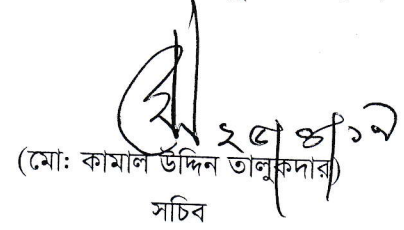 ২৫/৪/১৭
(মো: কামাল উদ্দিন তালুকদার)
সচিব